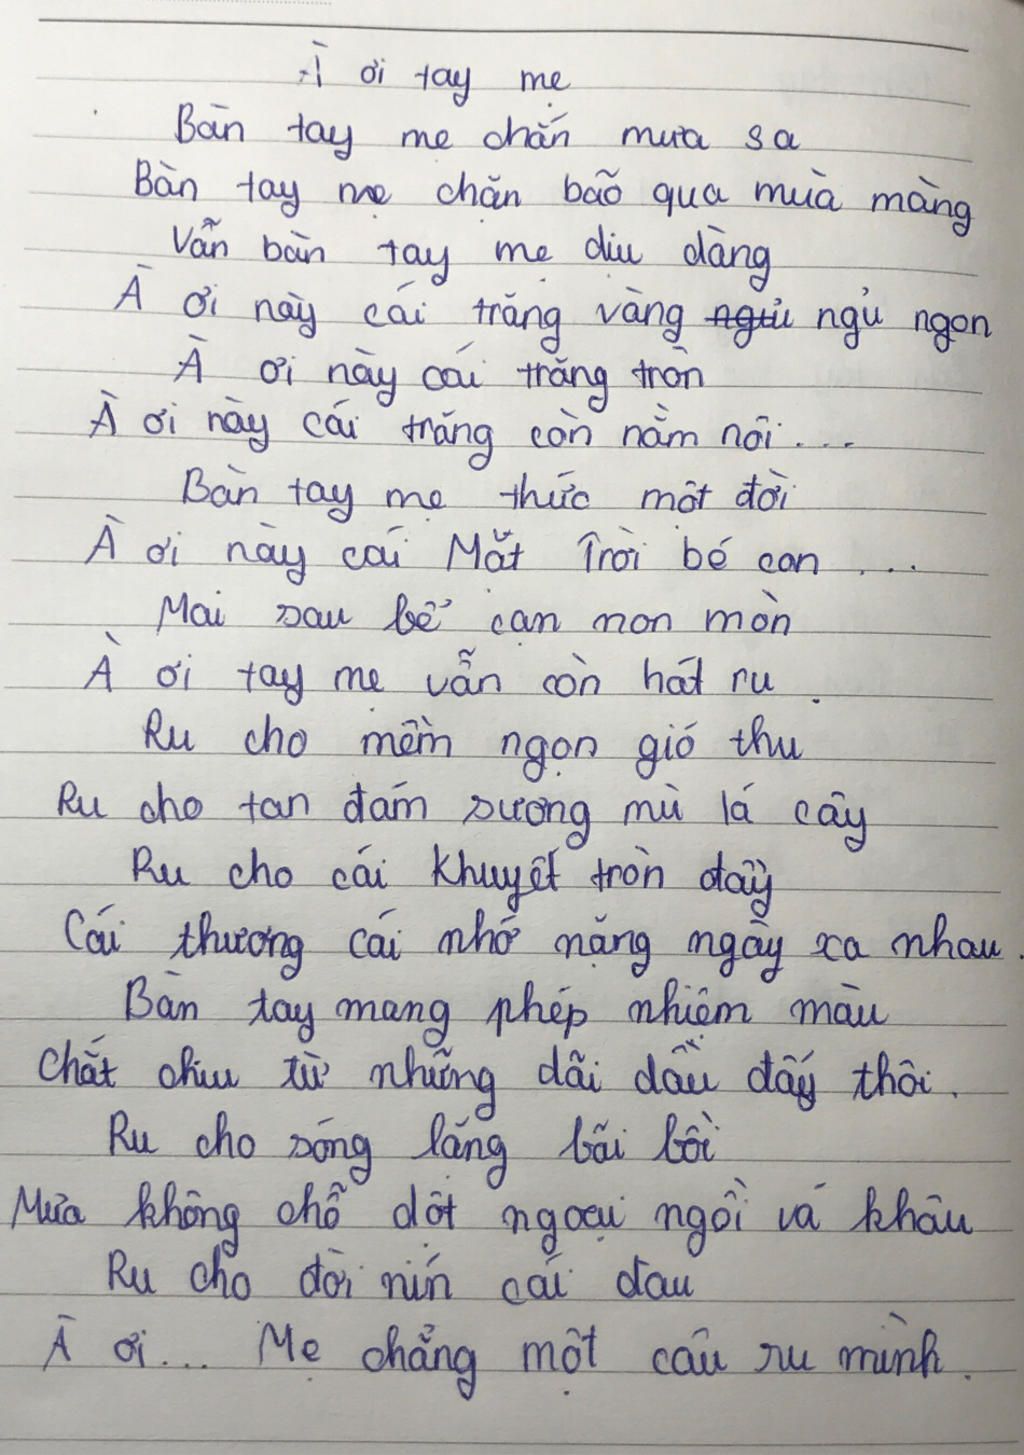 À ơi tay mẹ
Bàn tay mẹ chắn mưa sa
Bàn tay mẹ chặn bão qua mùa màng
Vẫn bàn tay mẹ dịu dàng
À ơi này cái trăng vàng ngủ ngủ ngon
À ơi này cái trăng tròn
À ơi này cái trăng còn nằm nôi...
Bàn tay mẹ thức một đời
À ơi này cái Mặt Trời bé con ...
Mai sau bể cạn non mòn
À ơi tay mẹ vẫn còn hát ru.
Ru cho mềm ngọn gió thu
Ru cho tan đám sương mù lá cây
Ru cho cái khuyết tròn đầy
Cái thương cái nhớ nặng ngày xa nhau.
Bàn tay mang phép nhiệm màu
Chắt chiu từ những dãi dầu đấy thôi.
Ru cho sóng lặng bãi bồi
Mưa không chỗ dột ngoại ngồi vá khâu
Ru cho đời nín cái đau
À ơi... Mẹ chẳng một câu ru mình.